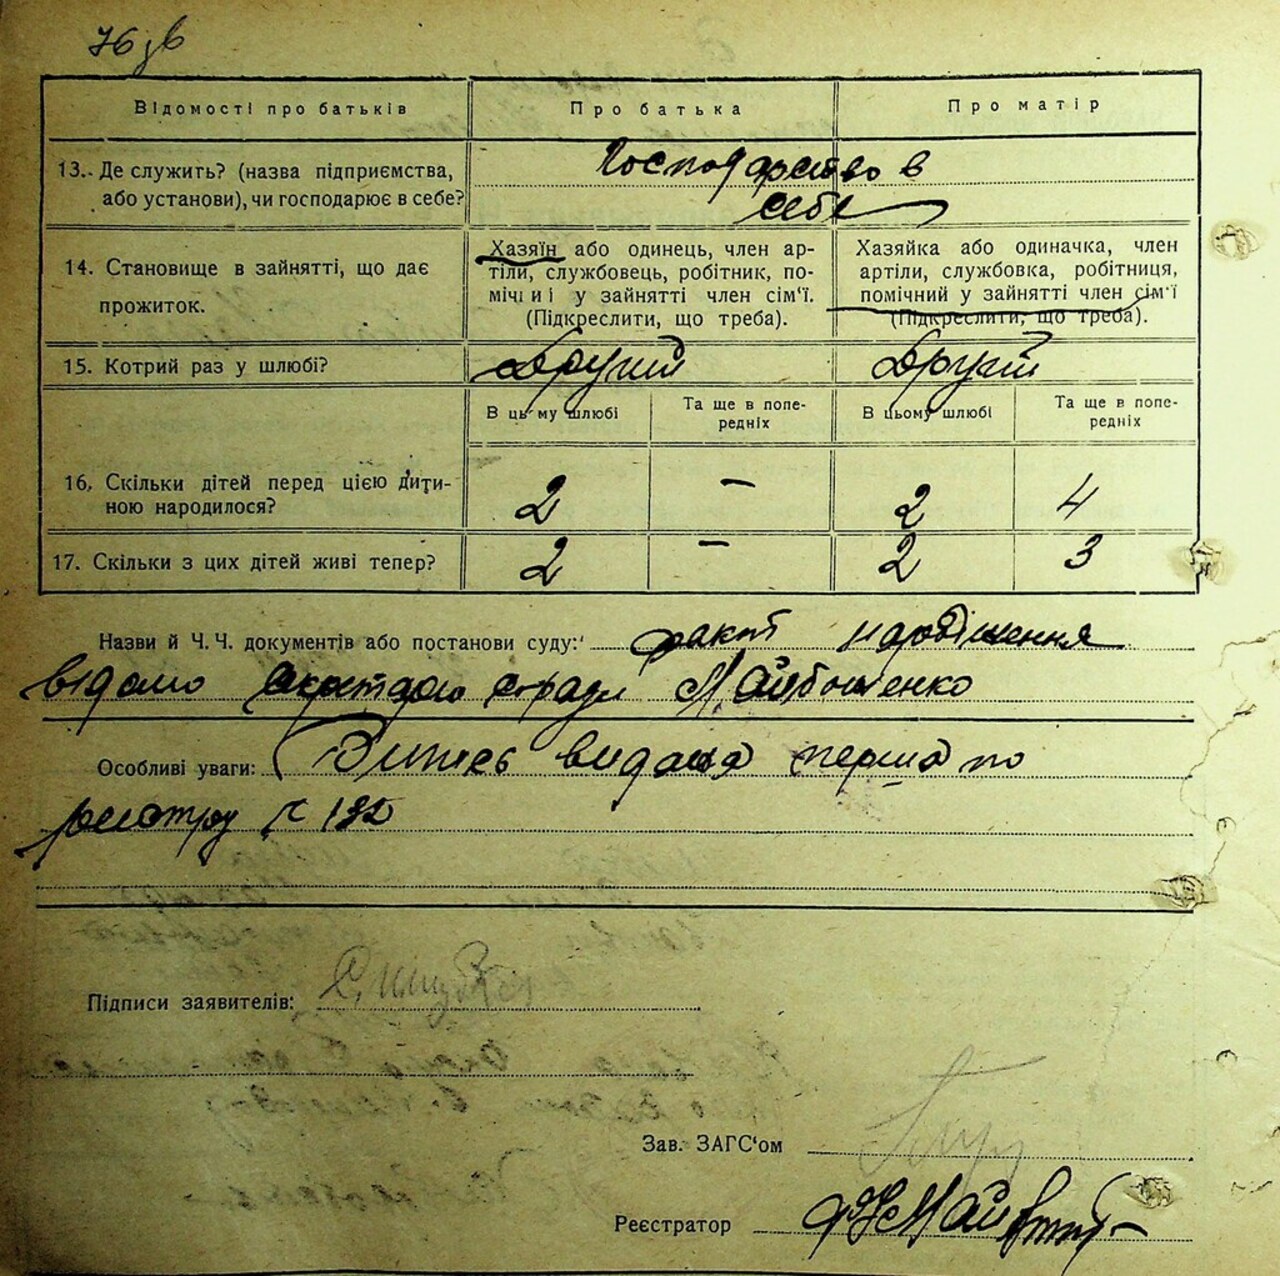 76 зв
Відомості про батьків
Про батька
Про матір
13. Де служить? (назва підприємства,
або установи), чи господарює в себе?
Господарство в
себе
14. Становище в зайнятті, що дає
прожиток.
Хазяїн або одинець, член ар-
тіли, службовець, робітник, по-
мічний у зайнятті член сім'ї.
(Підкреслити, що треба).
Хазяйка або одиначка, член
артіли, службовка, робітниця,
помічний у зайнятті член сім'ї
(Підкреслити, що треба).
15. Котрий раз у шлюбі?
Другий
Другий
В цьому шлюбі
Та ще в попе-
редніх
В цьому шлюбі
Та ще в попе-
редніх
16. Скільки дітей перед цією дити-
ною народилося?
2
–
2
4
17. Скільки з цих дітей живі тепер?
2
–
2
3
Назви й Ч. Ч. документів або постанови суду: факт народження
відомо с-ради
Особливі уваги: Випись видана перша по
реєстру № 132
Підписи заявителів:
Зав. ЗАГС'ом
Реєстратор